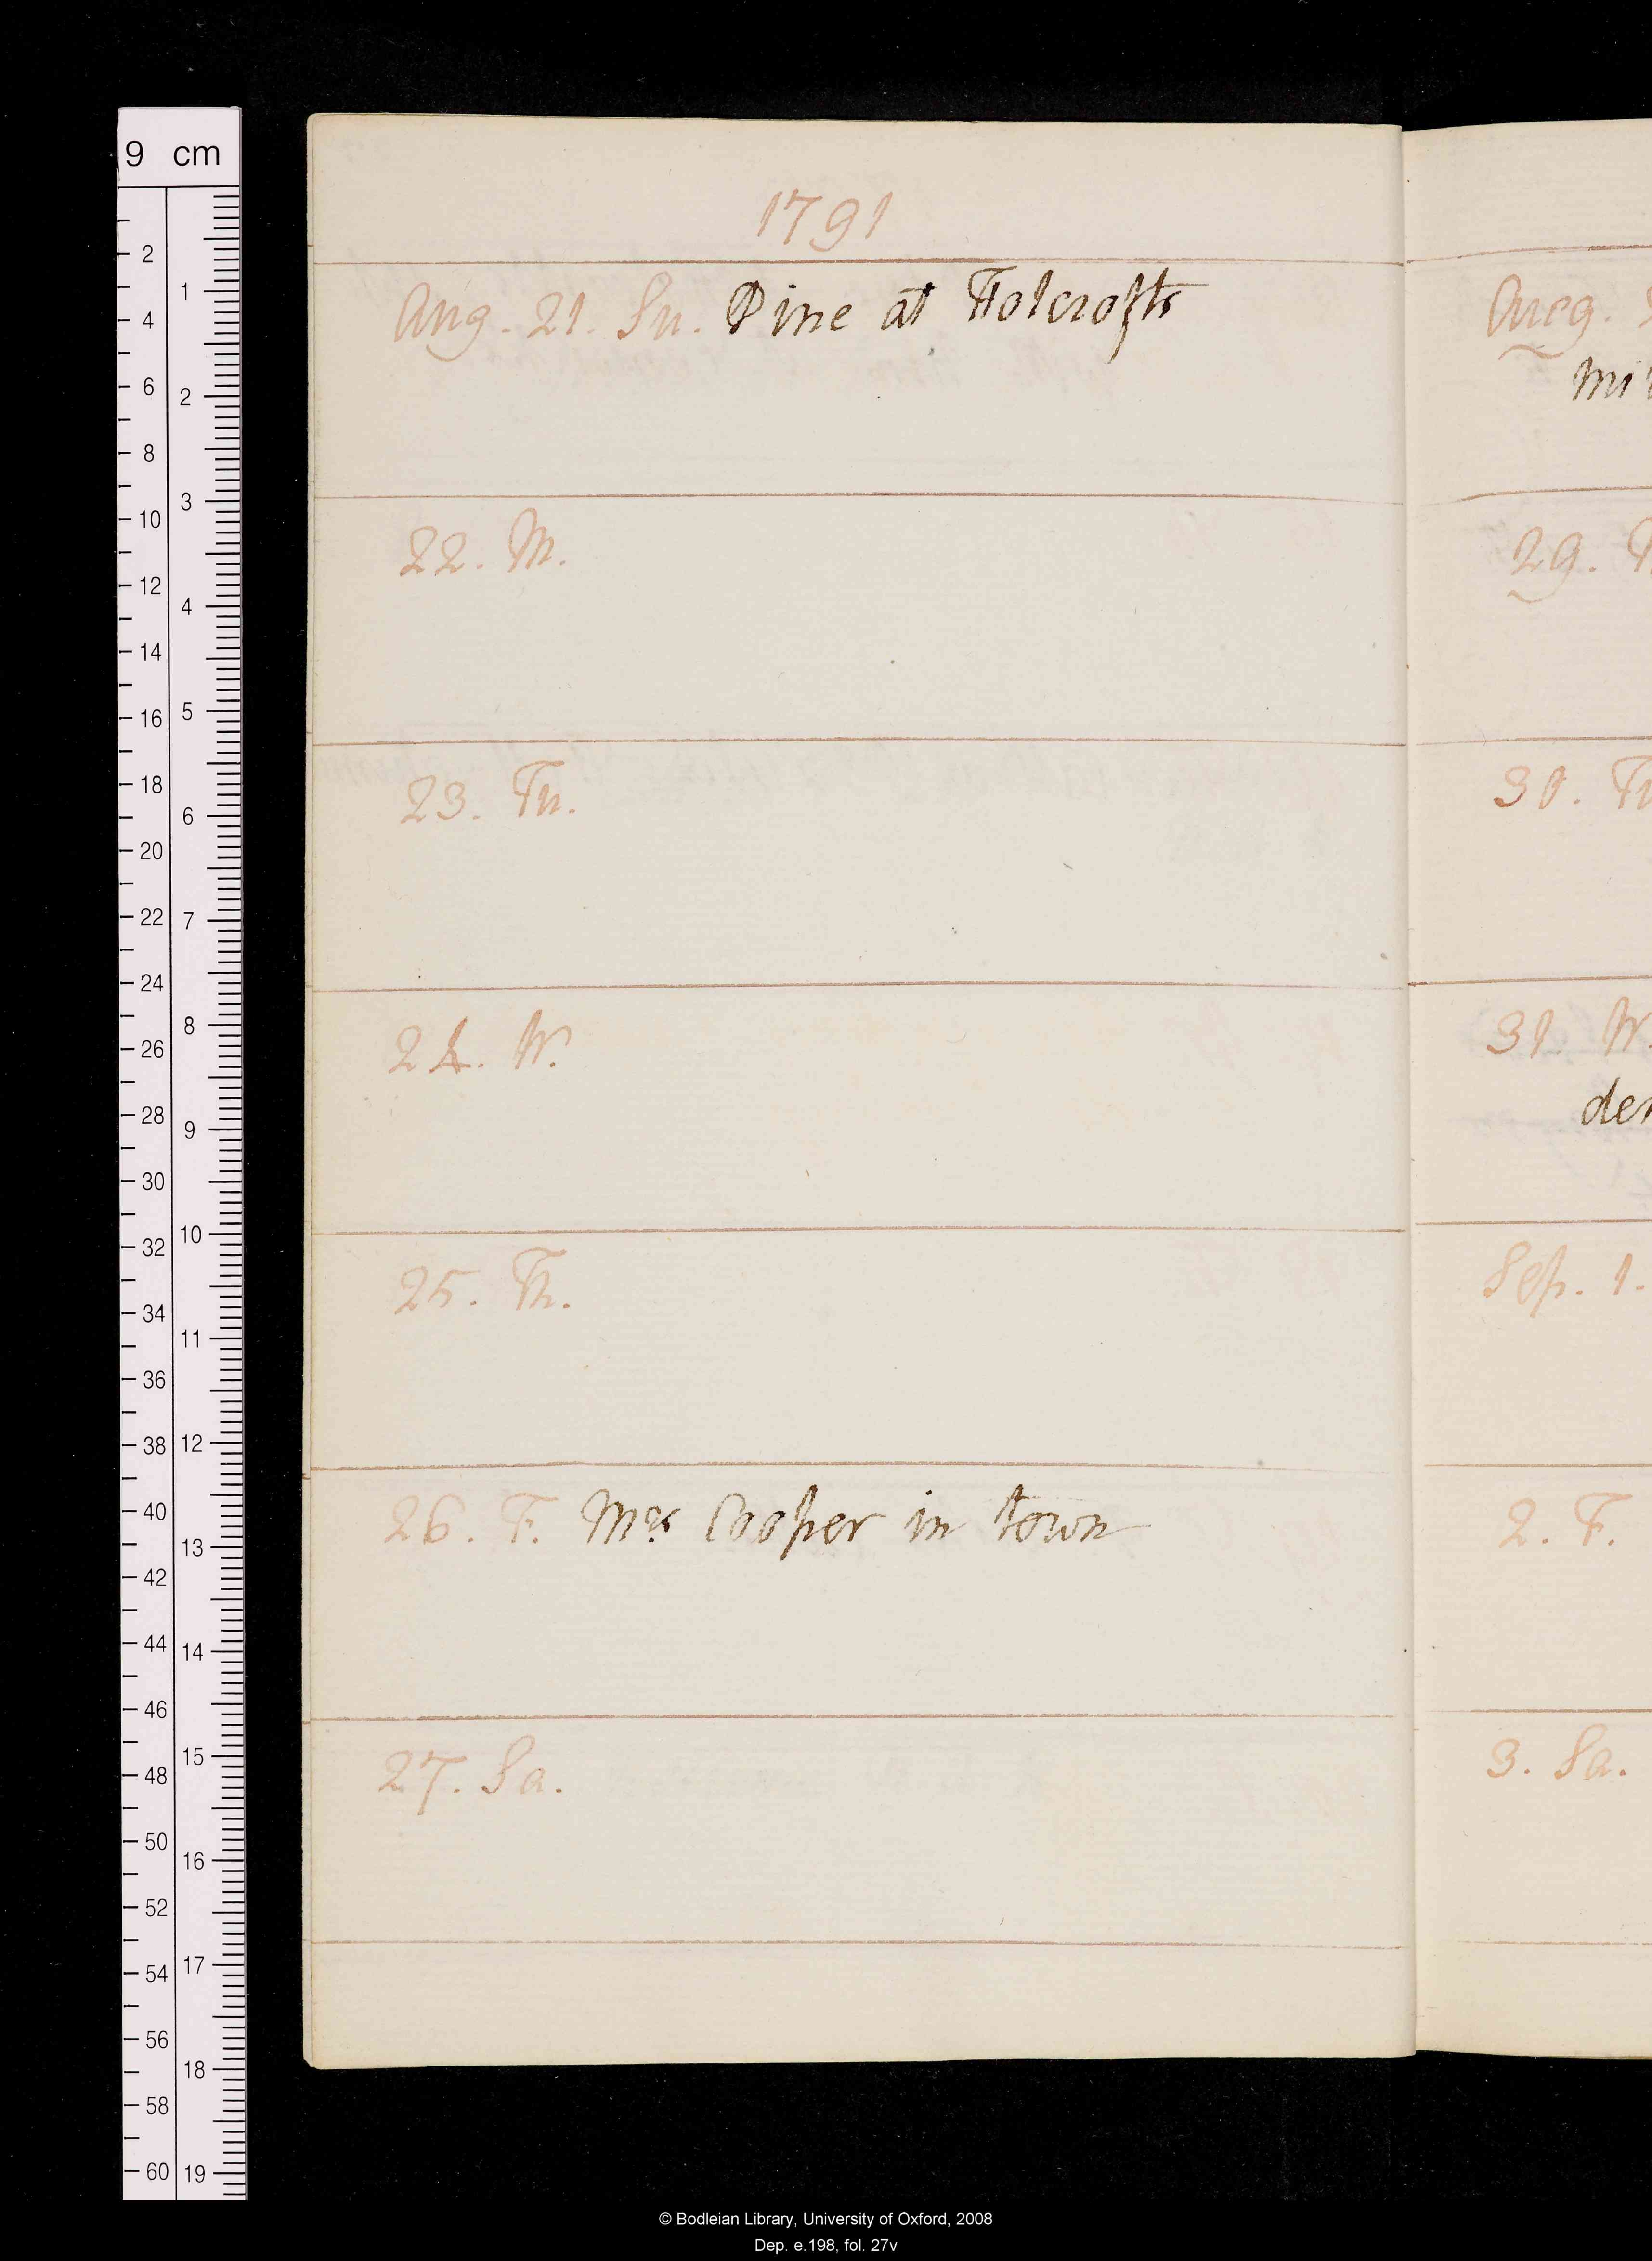 1791
Aug. 21. Su. Dine at Holcrofts
22. M.
23. Tu.
24. W.
25. Th.
26. F. Mrs Cooper in town
27. Sa.
Aug.
29.
30. Tu
31. W.
Sep. 1.
2. F.
3. Sa.
9 cm
2
4
6
8
10
12
14
16
18
20
22
24
26
28
30
32
34
36
38
40
42
44
46
48
50
52
54
56
58
60
1
2
3
4
5
6
7
8
9
10
11
12
13
14
15
16
17
18
19
© Bodleian Library, University of Oxford, 2008
Dep. e.198, fol. 27v